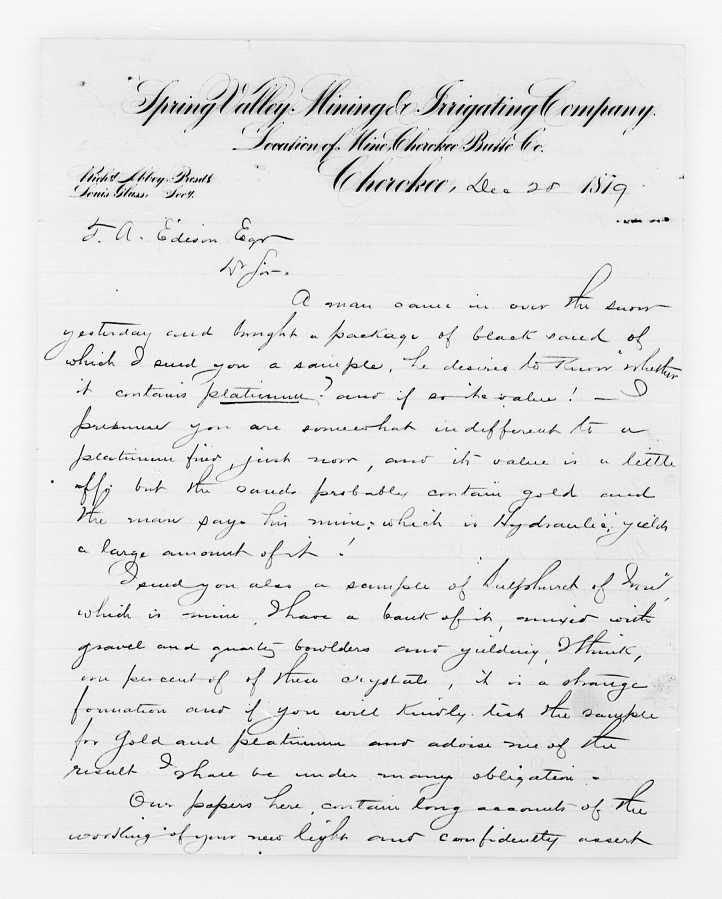 Spring Valley Mining & Irrigating Company.
Location of Mine, Cherokee Butte Co.
Rich'd Abbey. Prest.
Louis Glass. Secy.
Cherokee, Dec 28 1879
T. A. Edison Esqr
Dr Sir.
A man came in over the snow
yesterday and brought a package of black sand of
which I send you a sample, he desires to know "whether
it contains platinum? and if so its value! — I
presume you are somewhat indifferent to a
platinum find, just now, and its value is a little
off; but the sands probably contain gold and
the man says his mine, which is Hydraulic, yields
a large amount of it!
I send you also a sample of Sulphuret of Iron",
which is mine, I have a bank of it, mixed with
gravel and quartz bowlders and yielding, I think,
one percent of of these crystals, it is a strange
formation and if you will kindly test the sample
for gold and platinum and advise me of the
result I shall be under many obligation.
Our papers here, contain long accounts of the
working of your new light and confidently assert